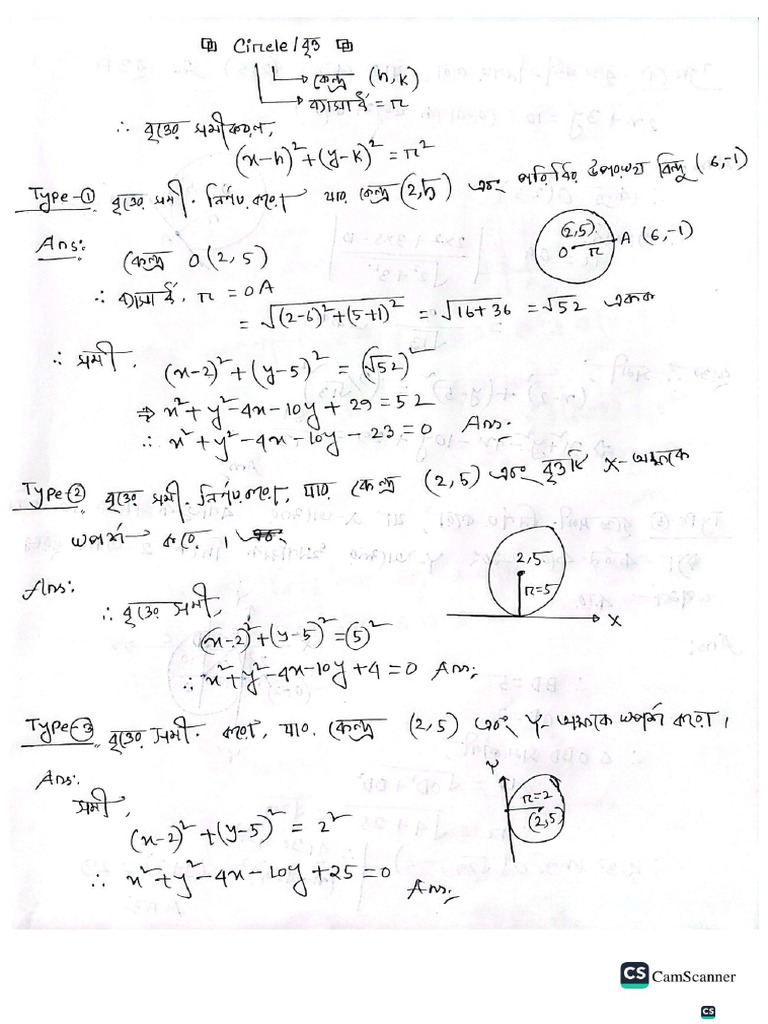 Circle/বৃত্ত
কেন্দ্র (h, k)
ব্যাসার্ধ = r
∴ বৃত্তের সমীকরণ,
(x-h)² + (y-k)² = r²
Type-① বৃত্তের সমী. নির্ণয় করো যার কেন্দ্র (2,5) এবং পরিধির উপরস্থ বিন্দু (6,-1)
Ans: কেন্দ্র O (2, 5)
(2,5)
O r A (6,-1)
∴ ব্যাসার্ধ, r = OA
= √(2-6)²+(5+1)² = √16+36 = √52 একক
∴ সমী,
(x-2)² + (y-5)² = (√52)²
⇒ x² + y² - 4x - 10y + 29 = 52
∴ x² + y² - 4x - 10y - 23 = 0 Ans.
Type-② বৃত্তের সমী. নির্ণয় করো, যার কেন্দ্র (2,5) এবং বৃত্তটি X-অক্ষকে
স্পর্শ করে।
2,5
r=5
X
Ans:
∴ বৃত্তের সমী,
(x-2)² + (y-5)² = (5)²
∴ x² + y² - 4x - 10y + 4 = 0 Ans:
Type-③ বৃত্তের সমী. করো, যার কেন্দ্র (2,5) এবং Y-অক্ষকে স্পর্শ করে।
Ans:
Y
r=2
(2,5)
সমী,
(x-2)² + (y-5)² = 2²
∴ x² + y² - 4x - 10y + 25 = 0 Ans:
CS CamScanner
CS